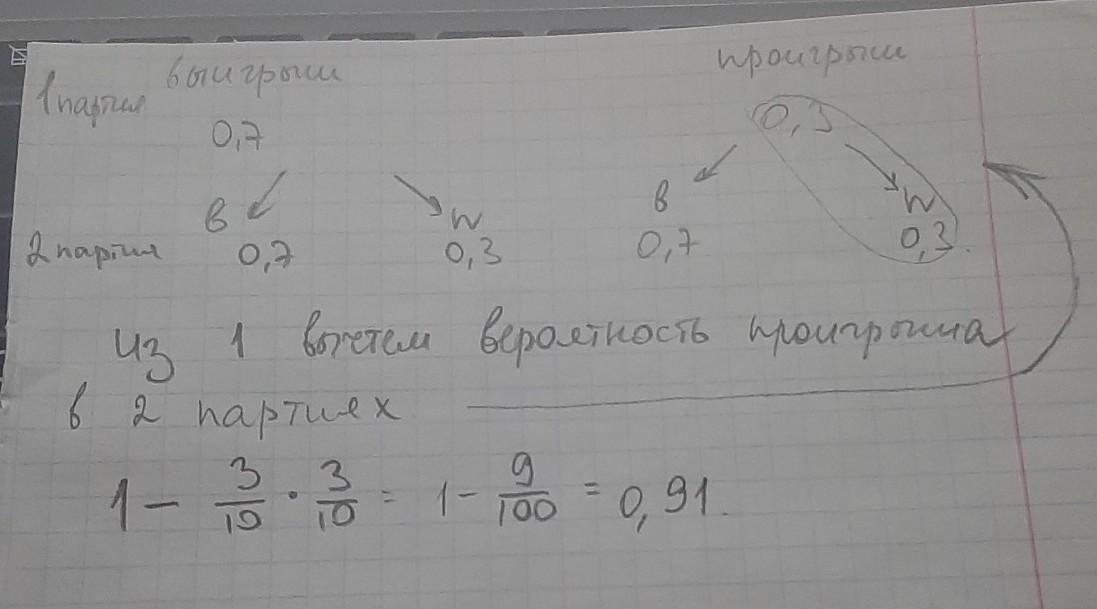 выигрыш проигрыш
1 партия
0,7 0,3
В N В N
2 партия 0,7 0,3 0,7 0,3.
Из 1 вычтем вероятность проигрыша
в 2 партиях
1 - 3/10 · 3/10 = 1 - 9/100 = 0,91.